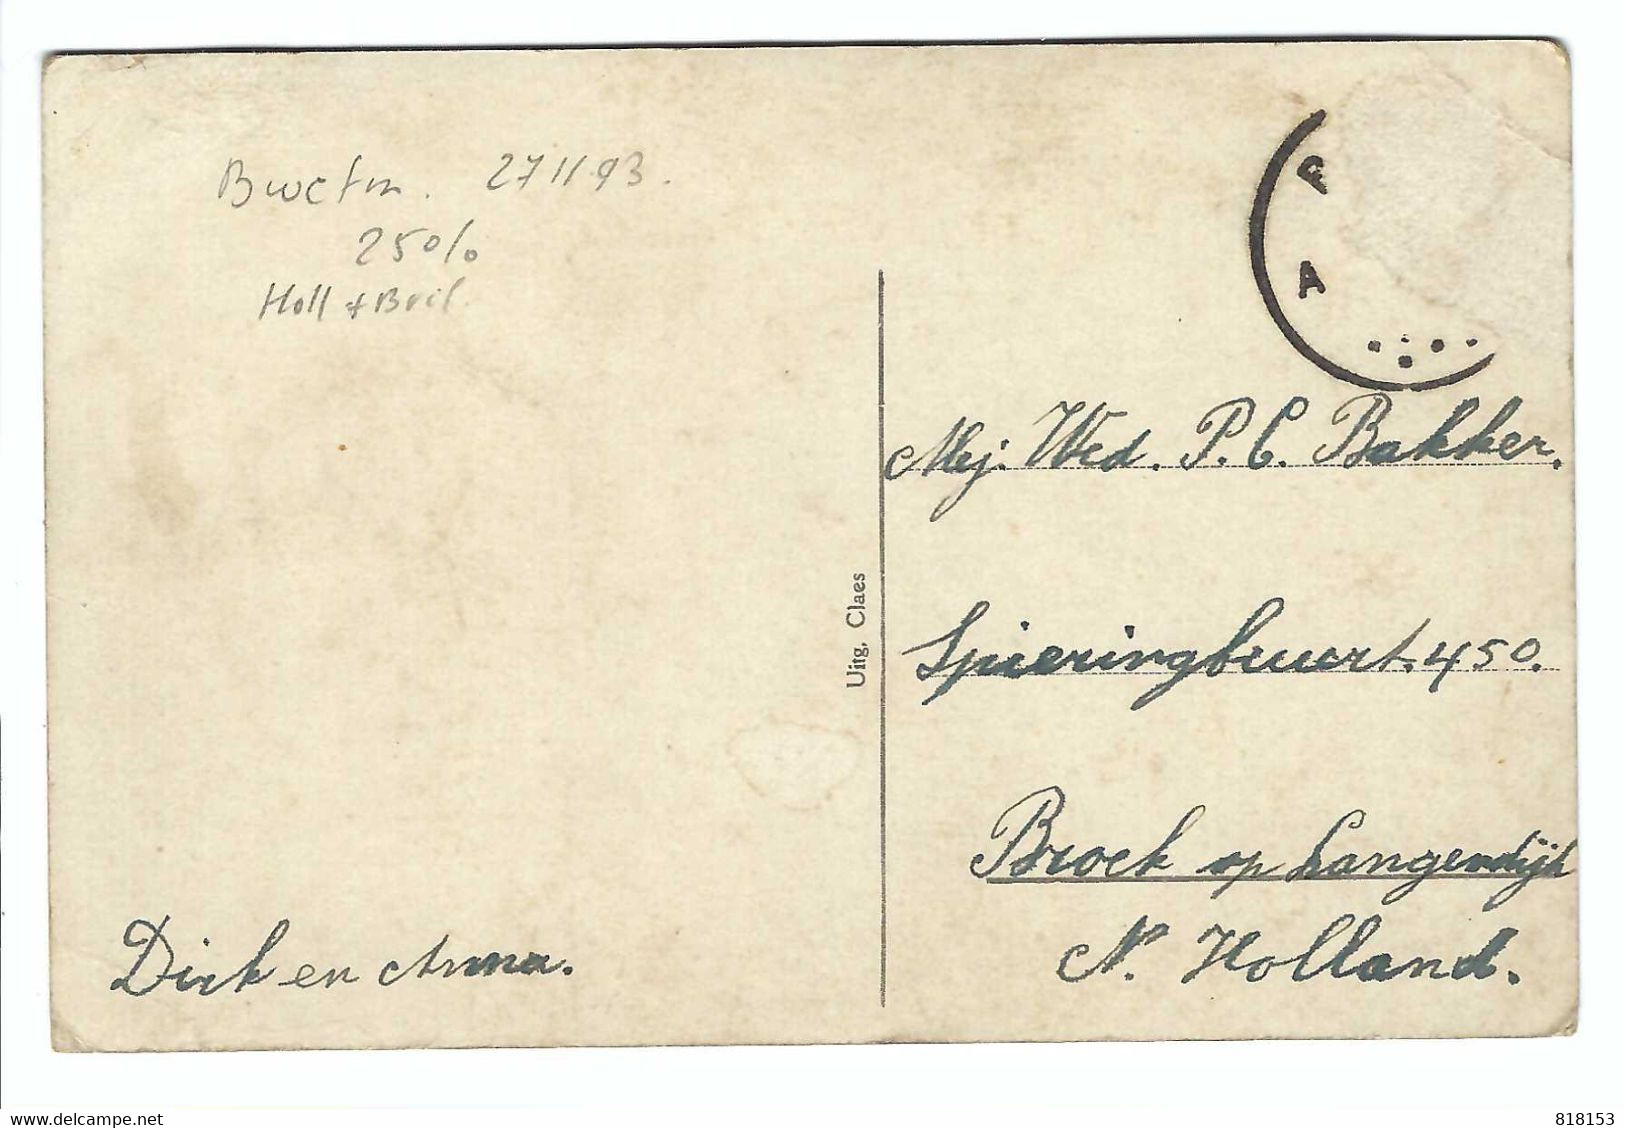 27 11 93.
25%
Holl +
P
A
Mej. Wed. P. C. Bakker.
Spieringbuurt. 450.
Broek op Langendijk
N. Holland.
Uitg. Claes
Dirk en Anna.
www.delcampe.net
818153